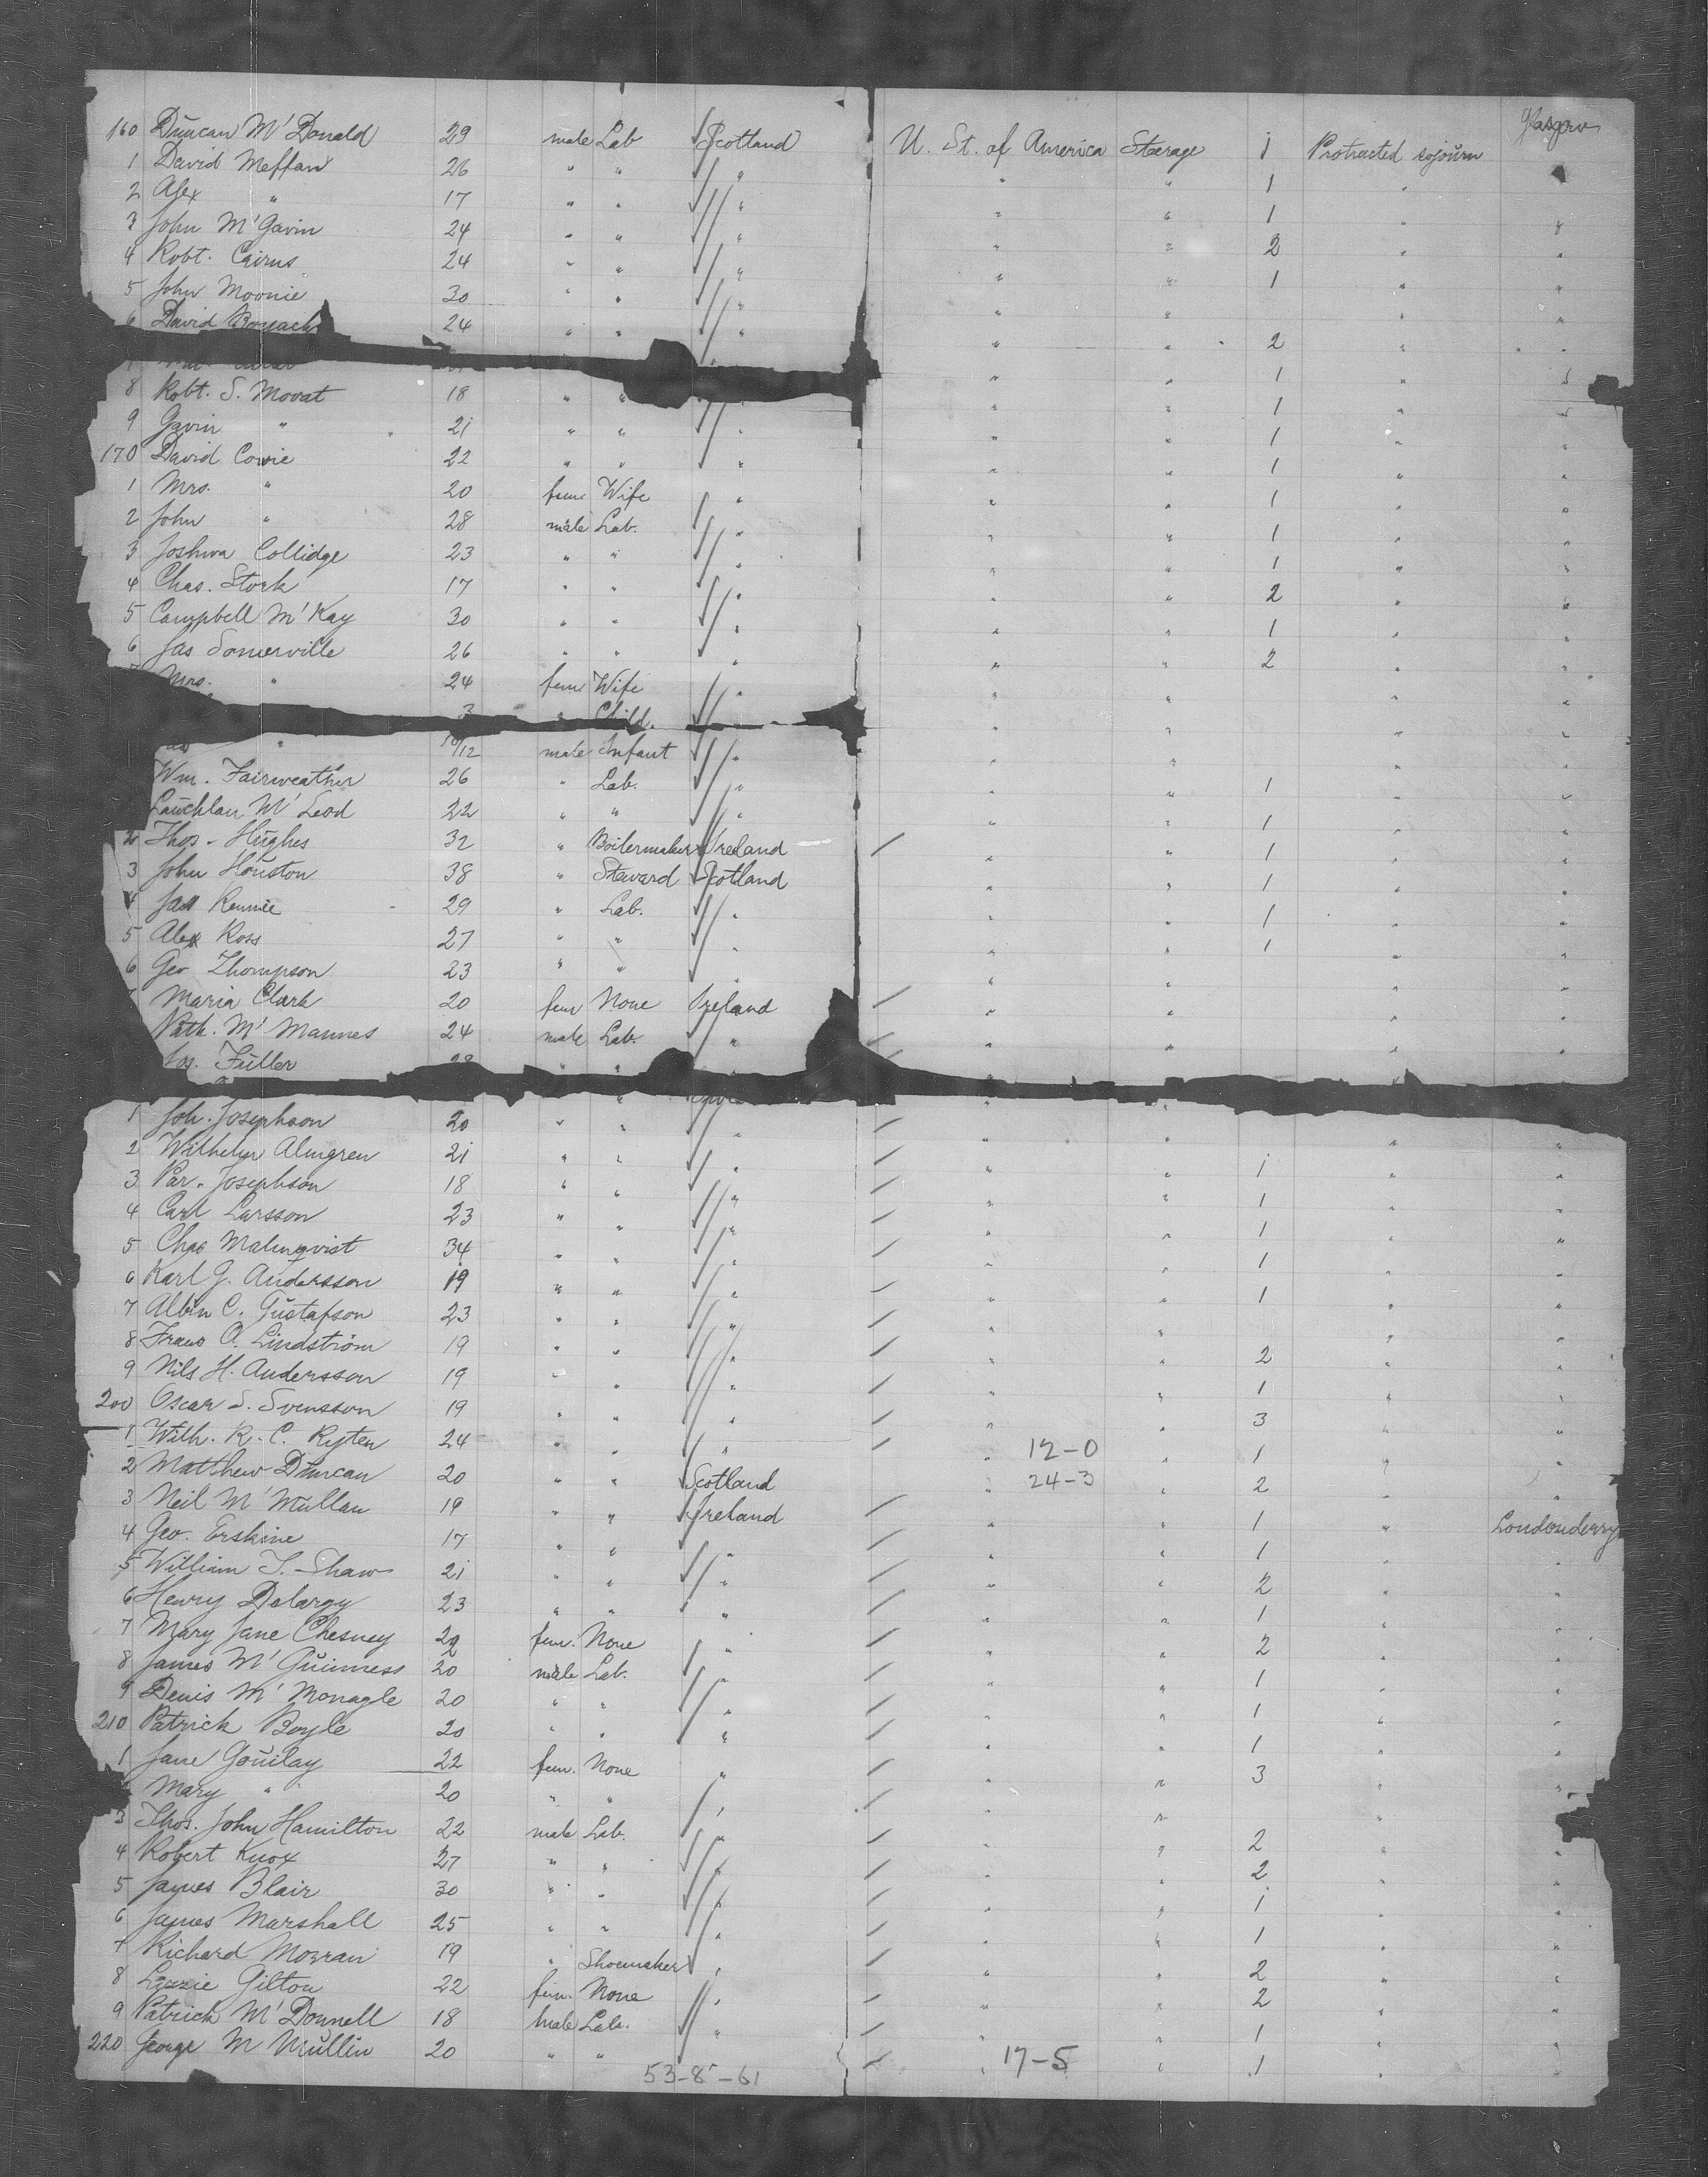 160 Duncan M'Donald 29 male Lab Scotland U. St. of America Steerage 1 Protracted sojourn Glasgow
1 David Meffan 26 " " " " " 1 " "
2 Alex " 17 " " " " " 1 " "
3 John M'Gavin 24 " " " " " 2 " "
4 Robt. Cairns 24 " " " " " 1 " "
5 John Moonie 30 " " " " " " "
6 David 24 " " " " " 2 " "
8 Robt. S. Mowat 18 " " " " 1 " "
9 Gavin " 21 " " " " " 1 " "
170 David Cowie 22 " " " " " 1 " "
1 Mrs. " 20 fem Wife " " " 1 " "
2 John " 28 male Lab. " " " 1 " "
3 Joshua Collidge 23 " " " " " 1 " "
4 Chas. Stork 17 " " " " " 2 " "
5 Campbell M'Kay 30 " " " " " 1 " "
6 Jas Somerville 26 " " " " " 2 " "
Mrs. " 24 fem Wife " " " " "
3 " Child. " " " "
" 10/12 male Infant " " " " "
Wm. Fairweather 26 " Lab. " " " 1 " "
Lauchlan M'Leod 22 " " " " " 1 " "
2 Thos. Hughes 32 " Boilermaker Ireland " " 1 " "
3 John Houston 38 " Steward Scotland " " 1 " "
4 Jas Rennie 29 " Lab. " " " 1 " "
5 Alex Ross 27 " " " " " 1 " "
6 Geo Thompson 23 " " " " " " "
Maria Clark 20 fem None Ireland " " " "
M'Mannes 24 male Lab. " " " " "
Fuller 28 " " "
1 Joh. Josephson 20 " " " " " " "
2 Wilhelm Almgren 21 " " " " " 1 " "
3 Par. Josephson 18 " " " " " 1 " "
4 Carl Larsson 23 " " " " " 1 " "
5 Chas Malmqvist 34 " " " " " 1 " "
6 Karl G. Andersson 19 " " " " " 1 " "
7 Albin C. Gustafson 23 " " " " " " "
8 Frans A. Lindström 19 " " " " " 2 " "
9 Nils H. Andersson 19 " " " " " 1 " "
200 Oscar S. Svensson 19 " " " " " 3 " "
1 Wilh. R. C. Ryten 24 " " " 12-0 " 1 " "
2 Matthew Duncan 20 " " Scotland " 24-3 " 2 " "
3 Neil M'Mullan 19 " " Ireland " " 1 " Londonderry
4 Geo. Erskine 17 " " " " " 1 " "
5 William J. Shaw 21 " " " " " 2 " "
6 Henry Delargy 23 " " " " " 1 " "
7 Mary Jane Chesney 22 fem. None " " " 2 " "
8 James M'Guinness 20 male Lab. " " " 1 " "
9 Denis M'Monagle 20 " " " " " 1 " "
210 Patrick Boyle 20 " " " " " 1 " "
1 Jane 22 fem. None " " " 3 " "
Mary " 20 " " " " " " "
3 Thos. John Hamilton 22 male Lab. " " " 2 " "
4 Robert Knox 27 " " " " " 2 " "
5 James Blair 30 " " " " " 1 " "
6 James Marshall 25 " " " " " 1 " "
7 Richard 19 " Shoemaker " " " 2 " "
8 Lizzie Gilton 22 fem. None " " " 2 " "
9 Patrick M'Donnell 18 male Lab. " " " 1 " "
220 George M Mullin 20 " " " 17-5 " 1 " "
53-8-61